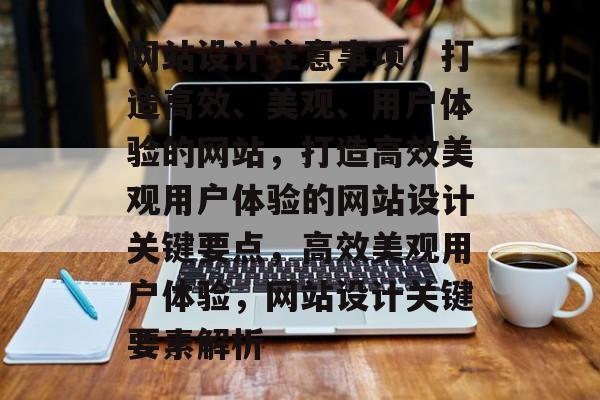 网站设计注意事项，打
造高效、美观、用户体
验的网站，打造高效美
观用户体验的网站设计
关键要点，高效美观用
户体验，网站设计关键
要素解析